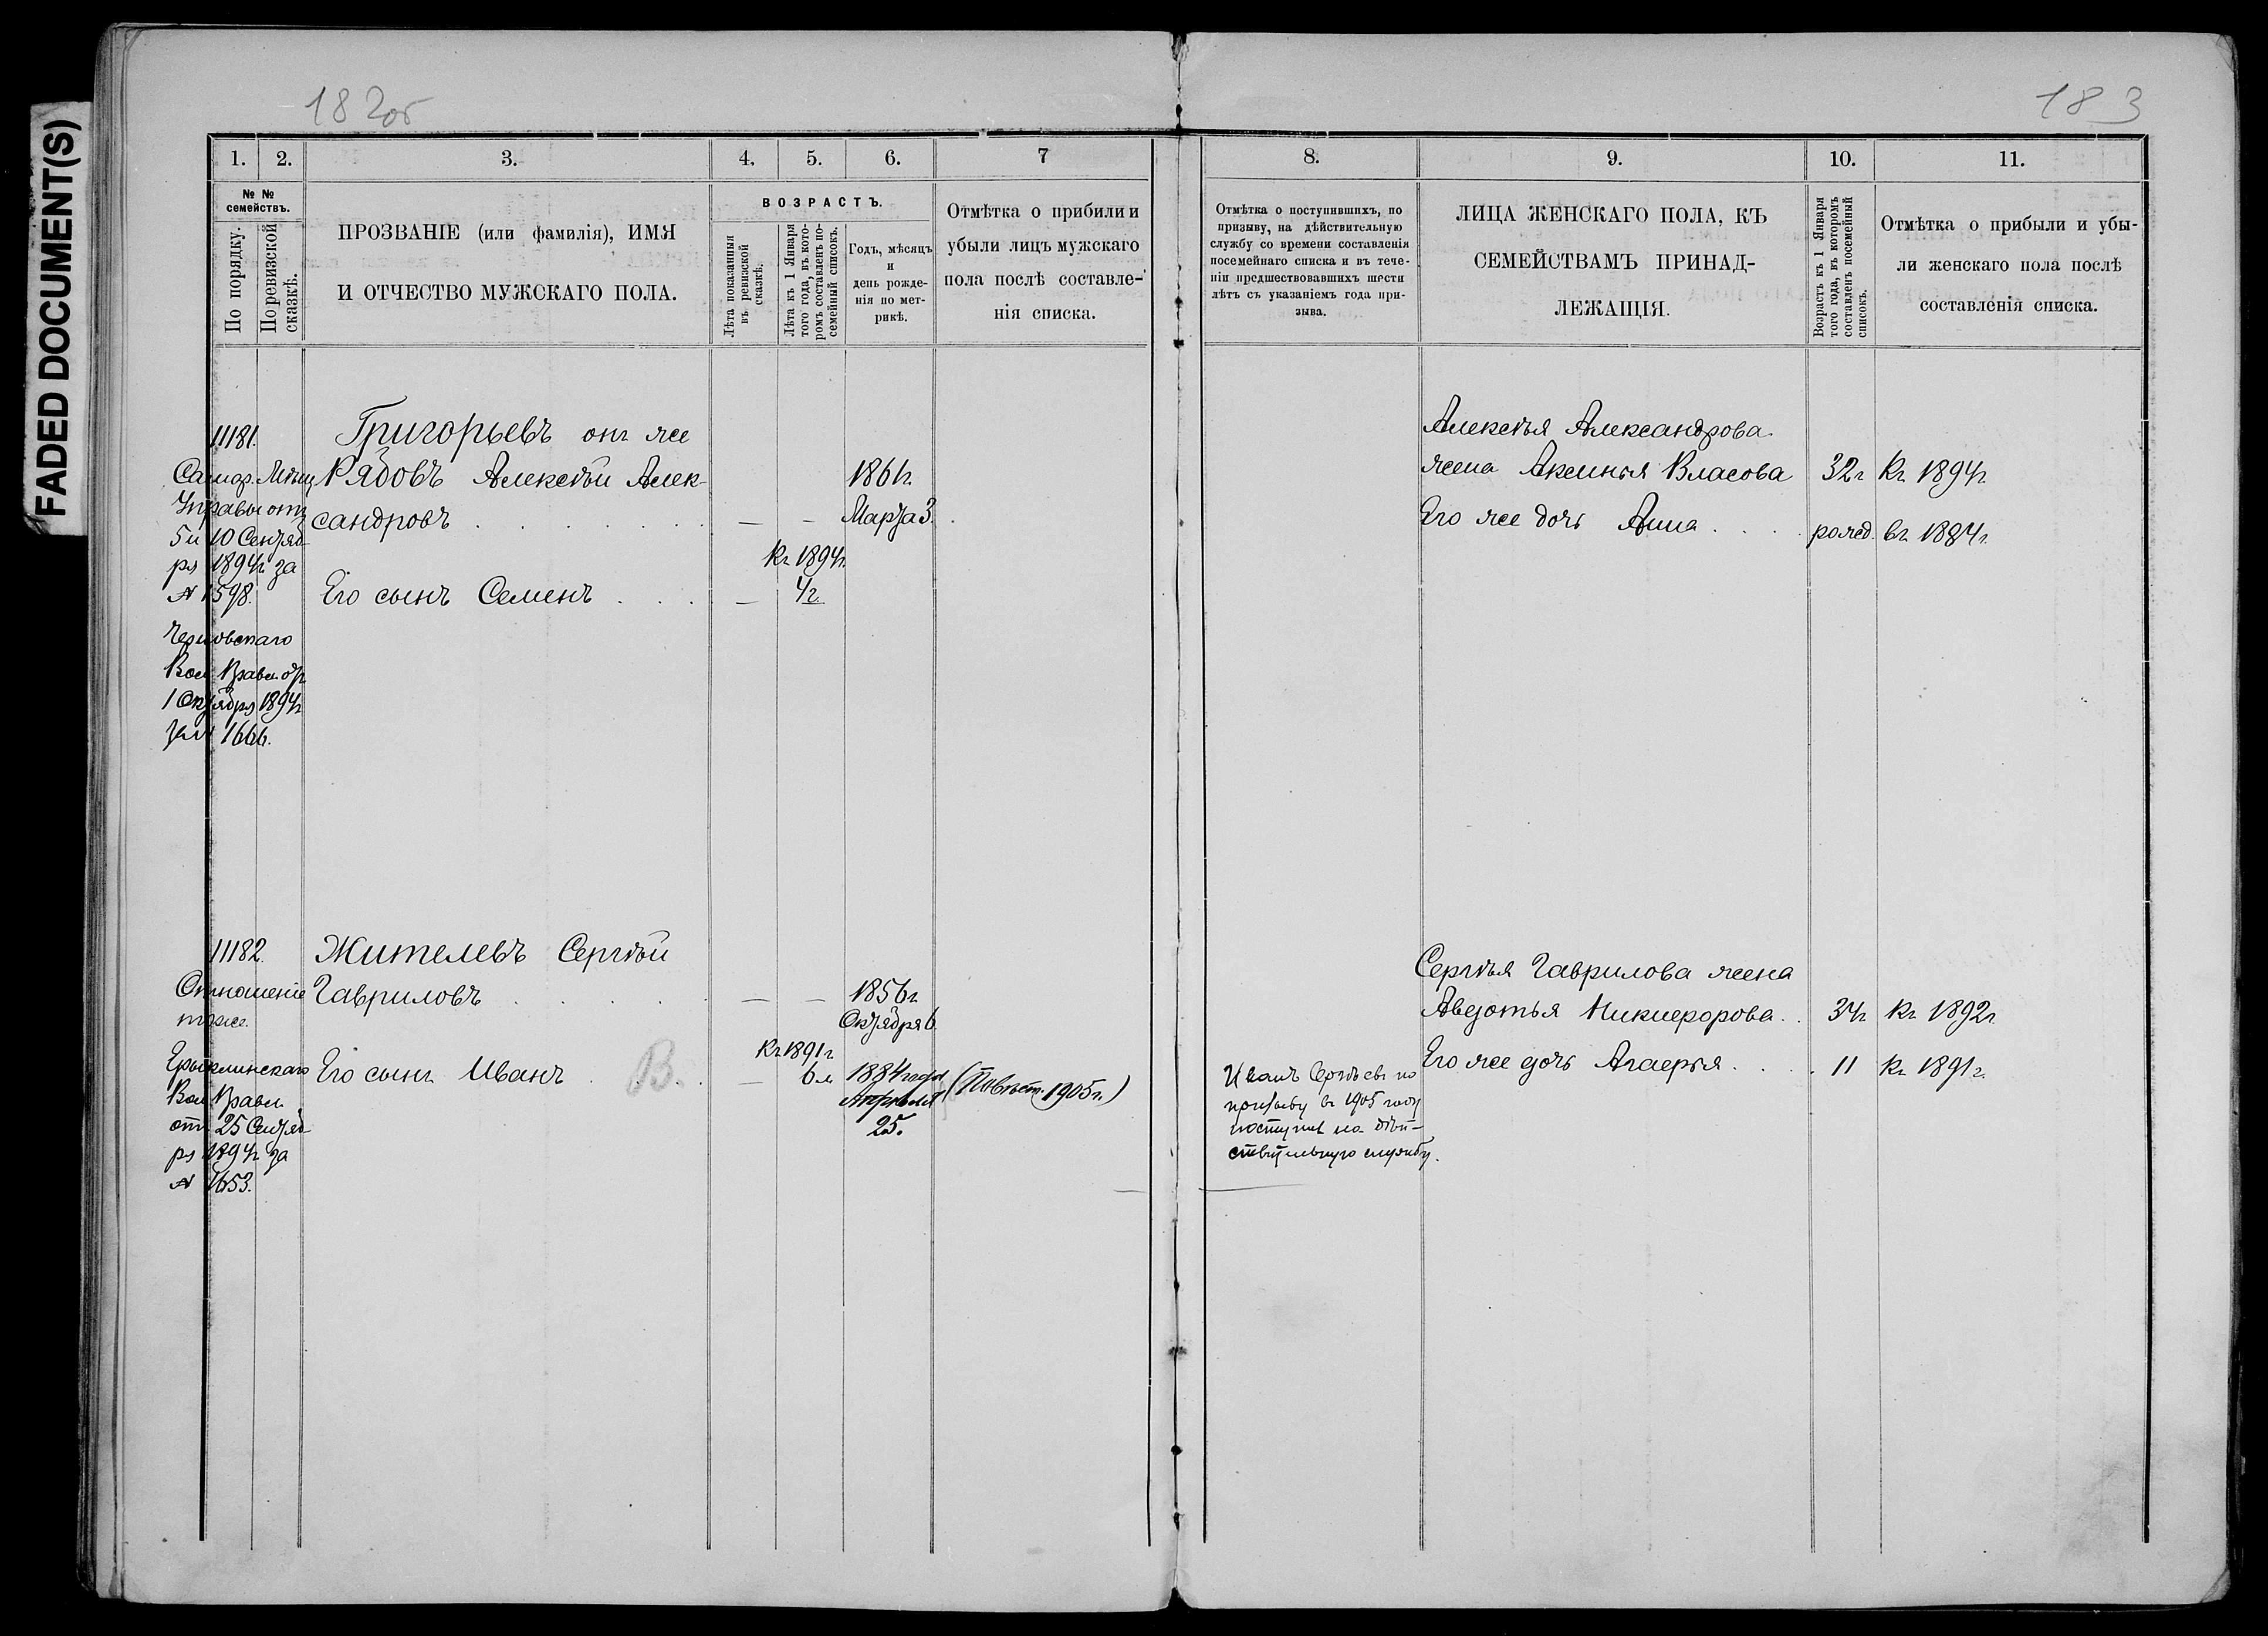 FADED DOCUMENT(S)
182об
1.
2.
3.
4.
5.
6.
7
№ №
семействъ.
По порядку.
По ревизской
сказкѣ.
ПРОЗВАНІЕ (или фамилія), ИМЯ
И ОТЧЕСТВО МУЖСКАГО ПОЛА.
ВОЗРАСТЪ.
Лѣта показанныя
въ ревизской
сказкѣ.
Лѣта къ 1 Января
того года, въ кото-
ромъ составленъ по-
семейный списокъ.
Годъ, мѣсяцъ
и
день рожде-
нія по мет-
рикѣ.
Отмѣтка о прибыли и
убыли лицъ мужскаго
пола послѣ составле-
нія списка.
11181.
Самар. Мѣщ.
Управы отъ
5 и 10 Сентяб-
ря 1894г. за
№ 1598.
Вол. Правл. отъ
1 Октября 1894г
за № 1666.
Григорьевъ онъ же
Рядовъ Алексѣй Алек-
сандровъ
1861г.
Марта 3.
Къ 1894г.
Его сынъ Семенъ
4г.
11182.
Отношеніе
тоже.
Ерыклинскаго
Вол. Правл.
отъ 25 Сентяб-
ря 1894г. за
№ 1653.
Жителевъ Сергѣй
Гавриловъ
1856г.
Октября 6.
Къ 1891г.
Его сынъ Иванъ В.
6 л.
1884 года
Апрѣля
25.
1905г.)
183
8.
9.
10.
11.
Отмѣтка о поступившихъ, по
призыву, на дѣйствительную
службу со времени составленія
посемейнаго списка и въ тече-
ніи предшествовавшихъ шести
лѣтъ съ указаніемъ года при-
зыва.
ЛИЦА ЖЕНСКАГО ПОЛА, КЪ
СЕМЕЙСТВАМЪ ПРИНАД-
ЛЕЖАЩІЯ.
Возрастъ къ 1 Января
того года, въ которомъ
составленъ посемейный
списокъ.
Отмѣтка о прибыли и убы-
ли женскаго пола послѣ
составленія списка.
Алексѣя Александрова
жена Аксинья Власова
32г.
Къ 1894г.
Его же дочь Анна
рожд.
въ 1884г.
Сергѣя Гаврилова жена
Авдотья Никифорова
34г.
Къ 1892г.
Его же дочь Агафья
11
Къ 1891г.
Иванъ Сергѣевъ по
призыву въ 1905 году
поступилъ на дѣй-
ствительную службу.